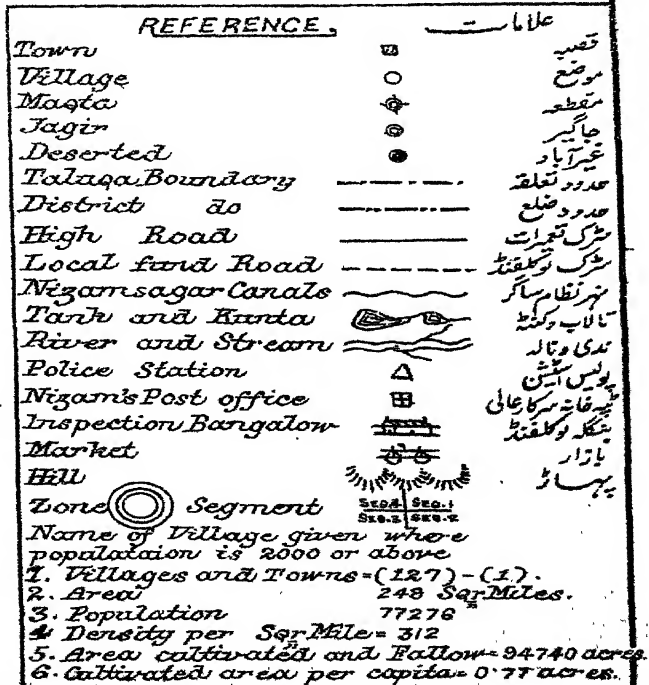 REFERENCE. علامات
Town قصبہ
Village موضع
Maqta مقطعہ
Jagir جاگیر
Deserted غیرآباد
Taluqa Boundary حدود تعلقہ
District do حدود ضلع
High Road سڑک تعمیرات
Local fund Road سڑک لوکلفنڈ
Nizamsagar Canals نہر نظام ساگر
Tank and Kunta تالاب وکنٹہ
River and Stream ندی ونالہ
Police Station پولیس اسٹیشن
Nizam's Post office ٹپہ خانہ سرکارعالی
Inspection Bangalow بنگلہ لوکلفنڈ
Market بازار
Hill پہاڑ
Zone Segment SEG.4 SEG.1
SEG.3 SEG.2
Name of Village given where
populataion is 2000 or above
1. Villages and Towns=(127)-(1).
2. Area 248 Sqr Miles.
3. Population 77276
4. Density per Sqr Mile= 312
5. Area cultivated and Fallow=94740 acres.
6. Cultivated area per capita= 0.77 acres.